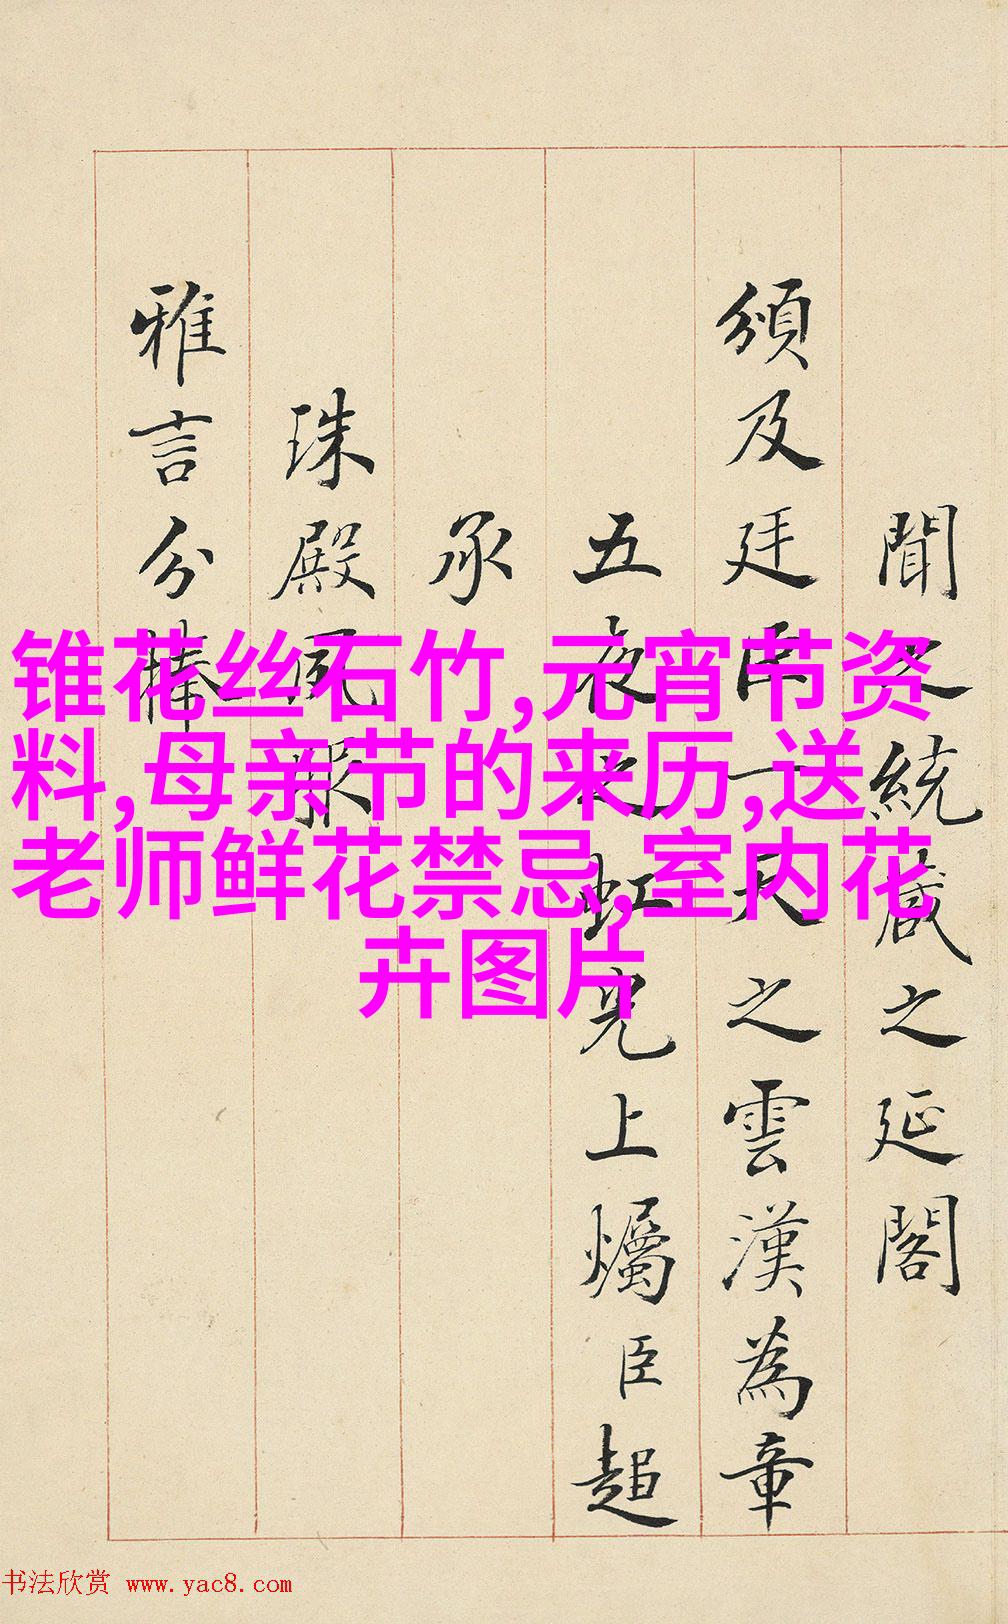 聞之統箴之延閣
頒及廷臣一天之雲漢為章
五夜之虹光上燭臣超
承
珠殿夙服
雅言分捧
锥花丝石竹,元宵节资
料,母亲节的来历,送
老师鲜花禁忌,室内花
卉图片
书法欣赏 www.yac8.com